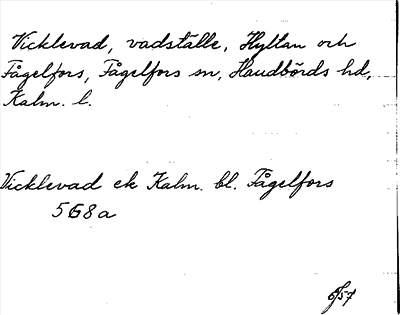 Vicklevad, vadställe, Hyltan och
Fågelfors, Fågelfors sn, Handbörds hd,
Kalm. l.
Vicklevad ek Kalm. bl. Fågelfors
5G8a